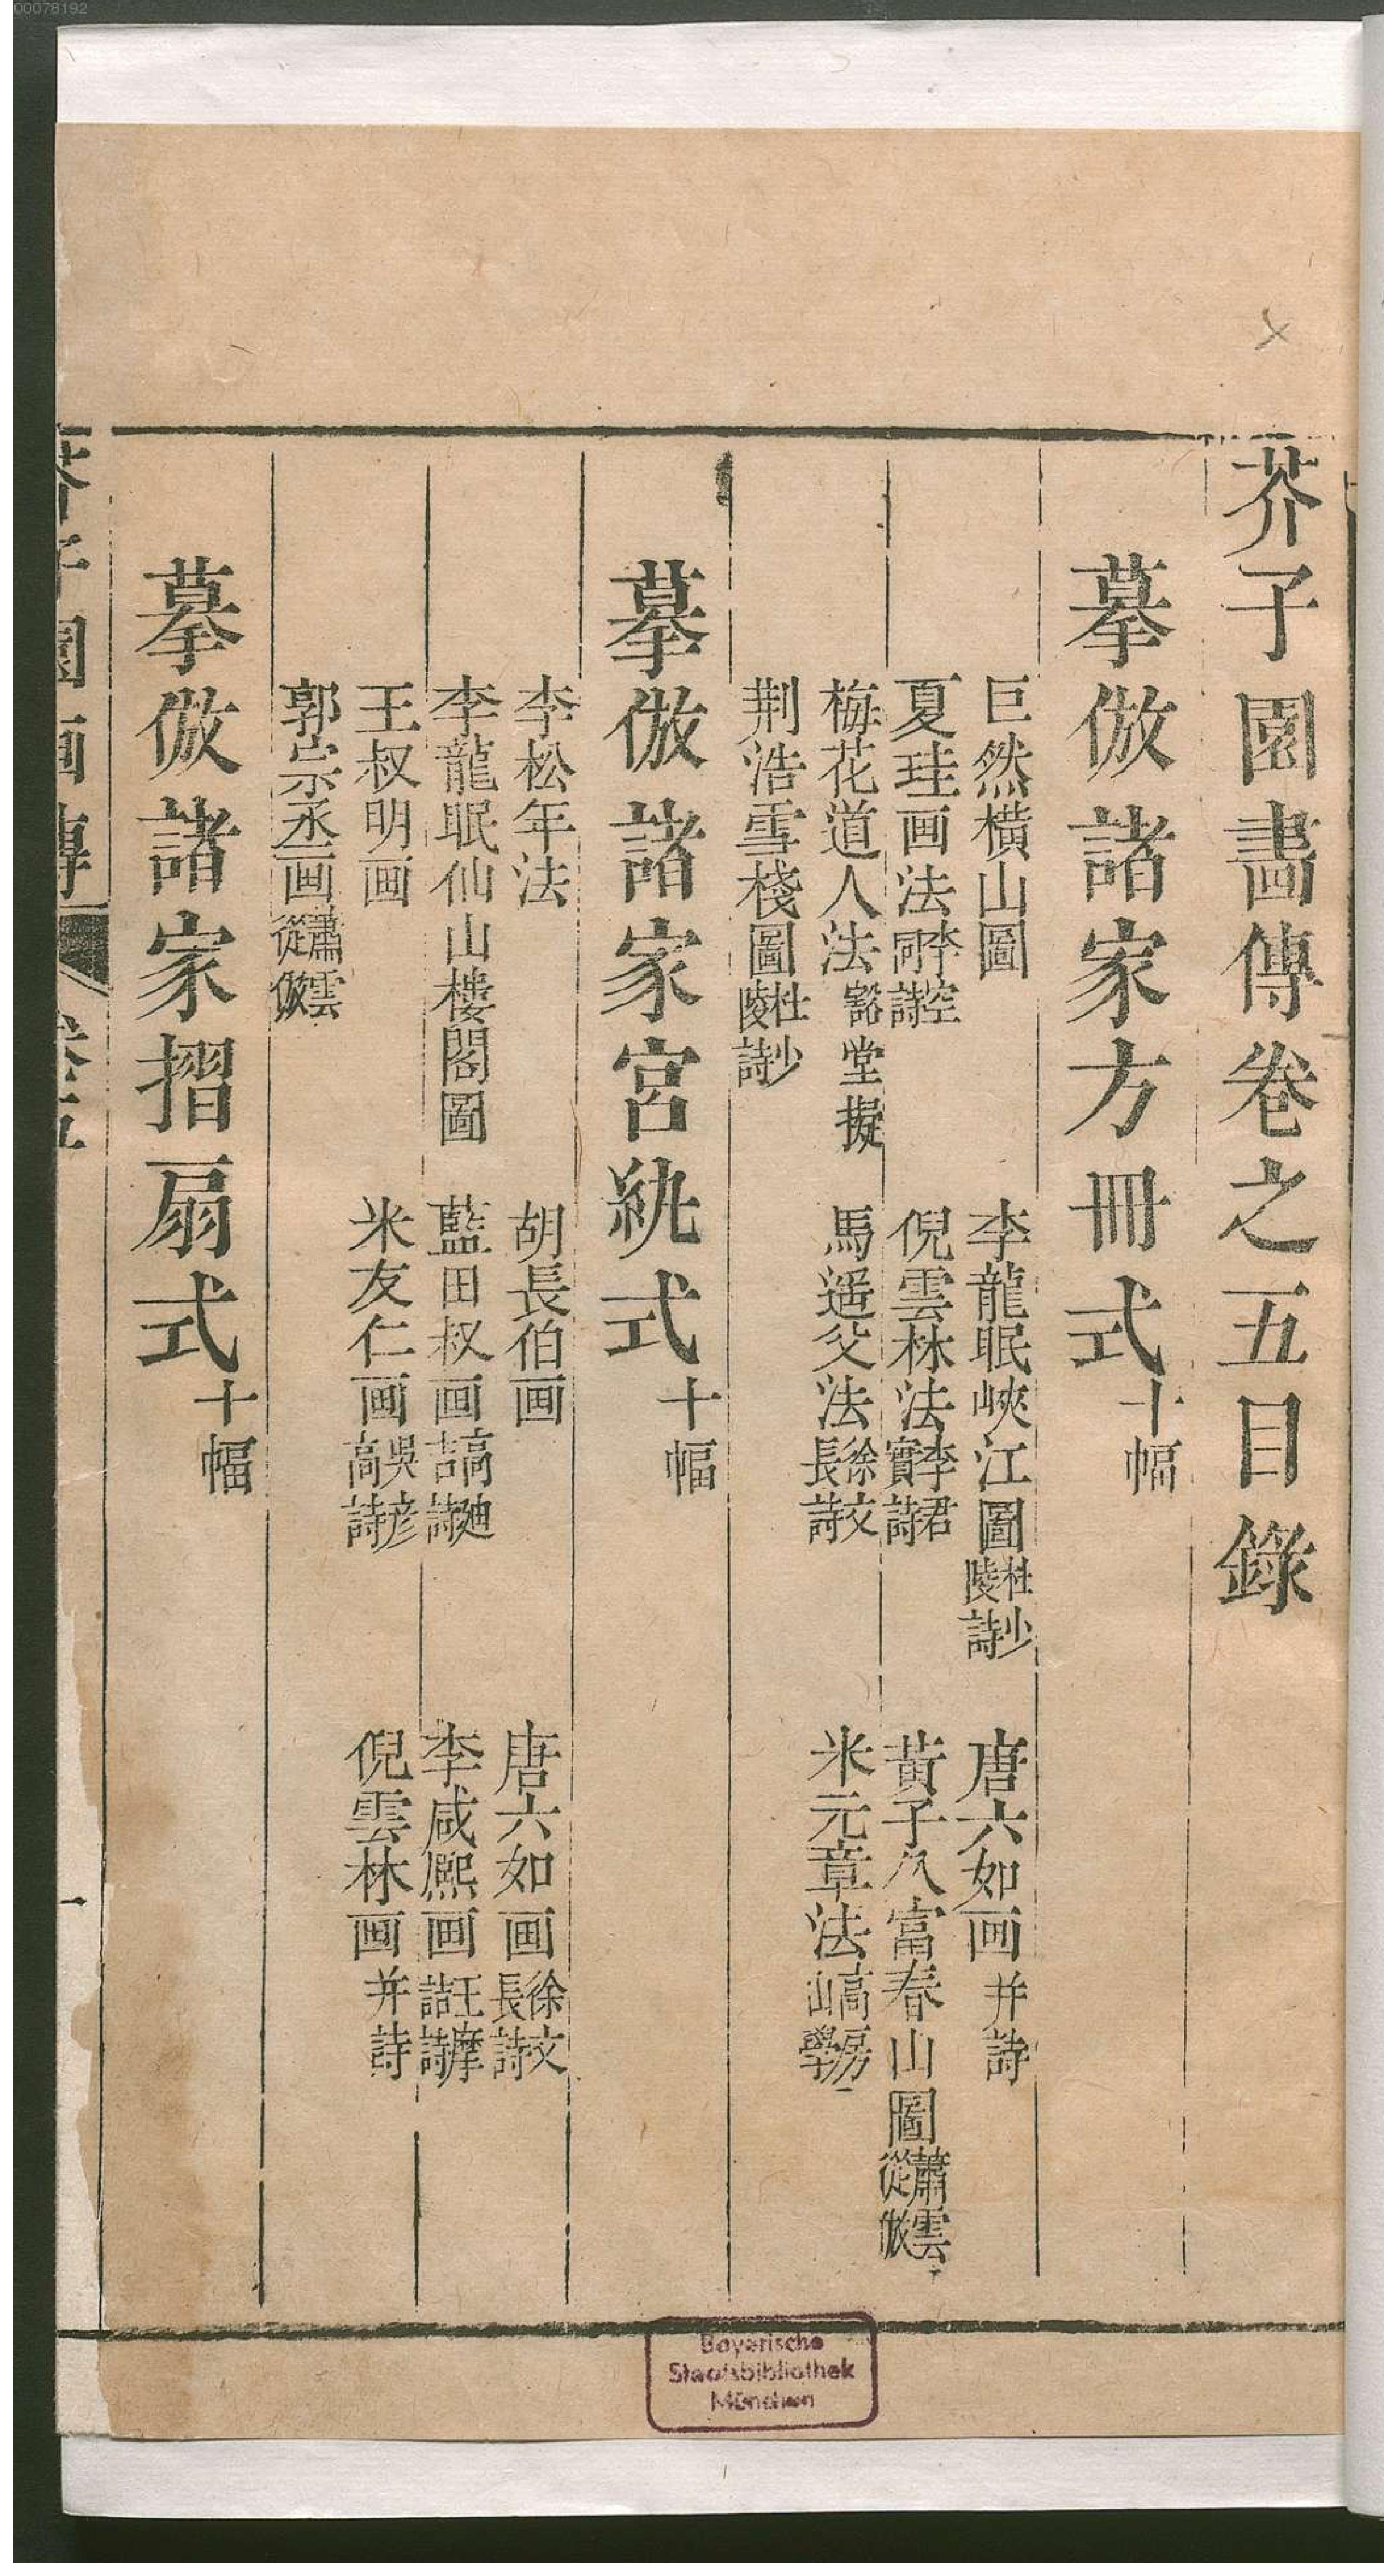 00078192
芥子園畵傳卷之五目錄
摹倣諸家方冊式十幅
巨然横山圖 李龍眠峽江圖杜少陵詩 唐六如画并詩
夏珪画法李空同詩 倪雲林法李君實詩 黃子久富春山圖蕭雲從倣
梅花道人法豁堂擬 馬遥父法徐文長詩 米元章法高房山學
荆浩雪棧圖杜少陵詩
摹倣諸家宮紈式十幅
李松年法 胡長伯画 唐六如画徐文長詩
李龍眠仙山樓閣圖 藍田叔画高廸吉詩 李咸熙画王摩詰詩
王叔明画 米友仁画吳彦高詩 倪雲林画并詩
郭宗丞画蕭雲從倣
摹倣諸家摺扇式十幅
芥子園画傳 卷五 一
Bayerische
Staatsbibliothek
München